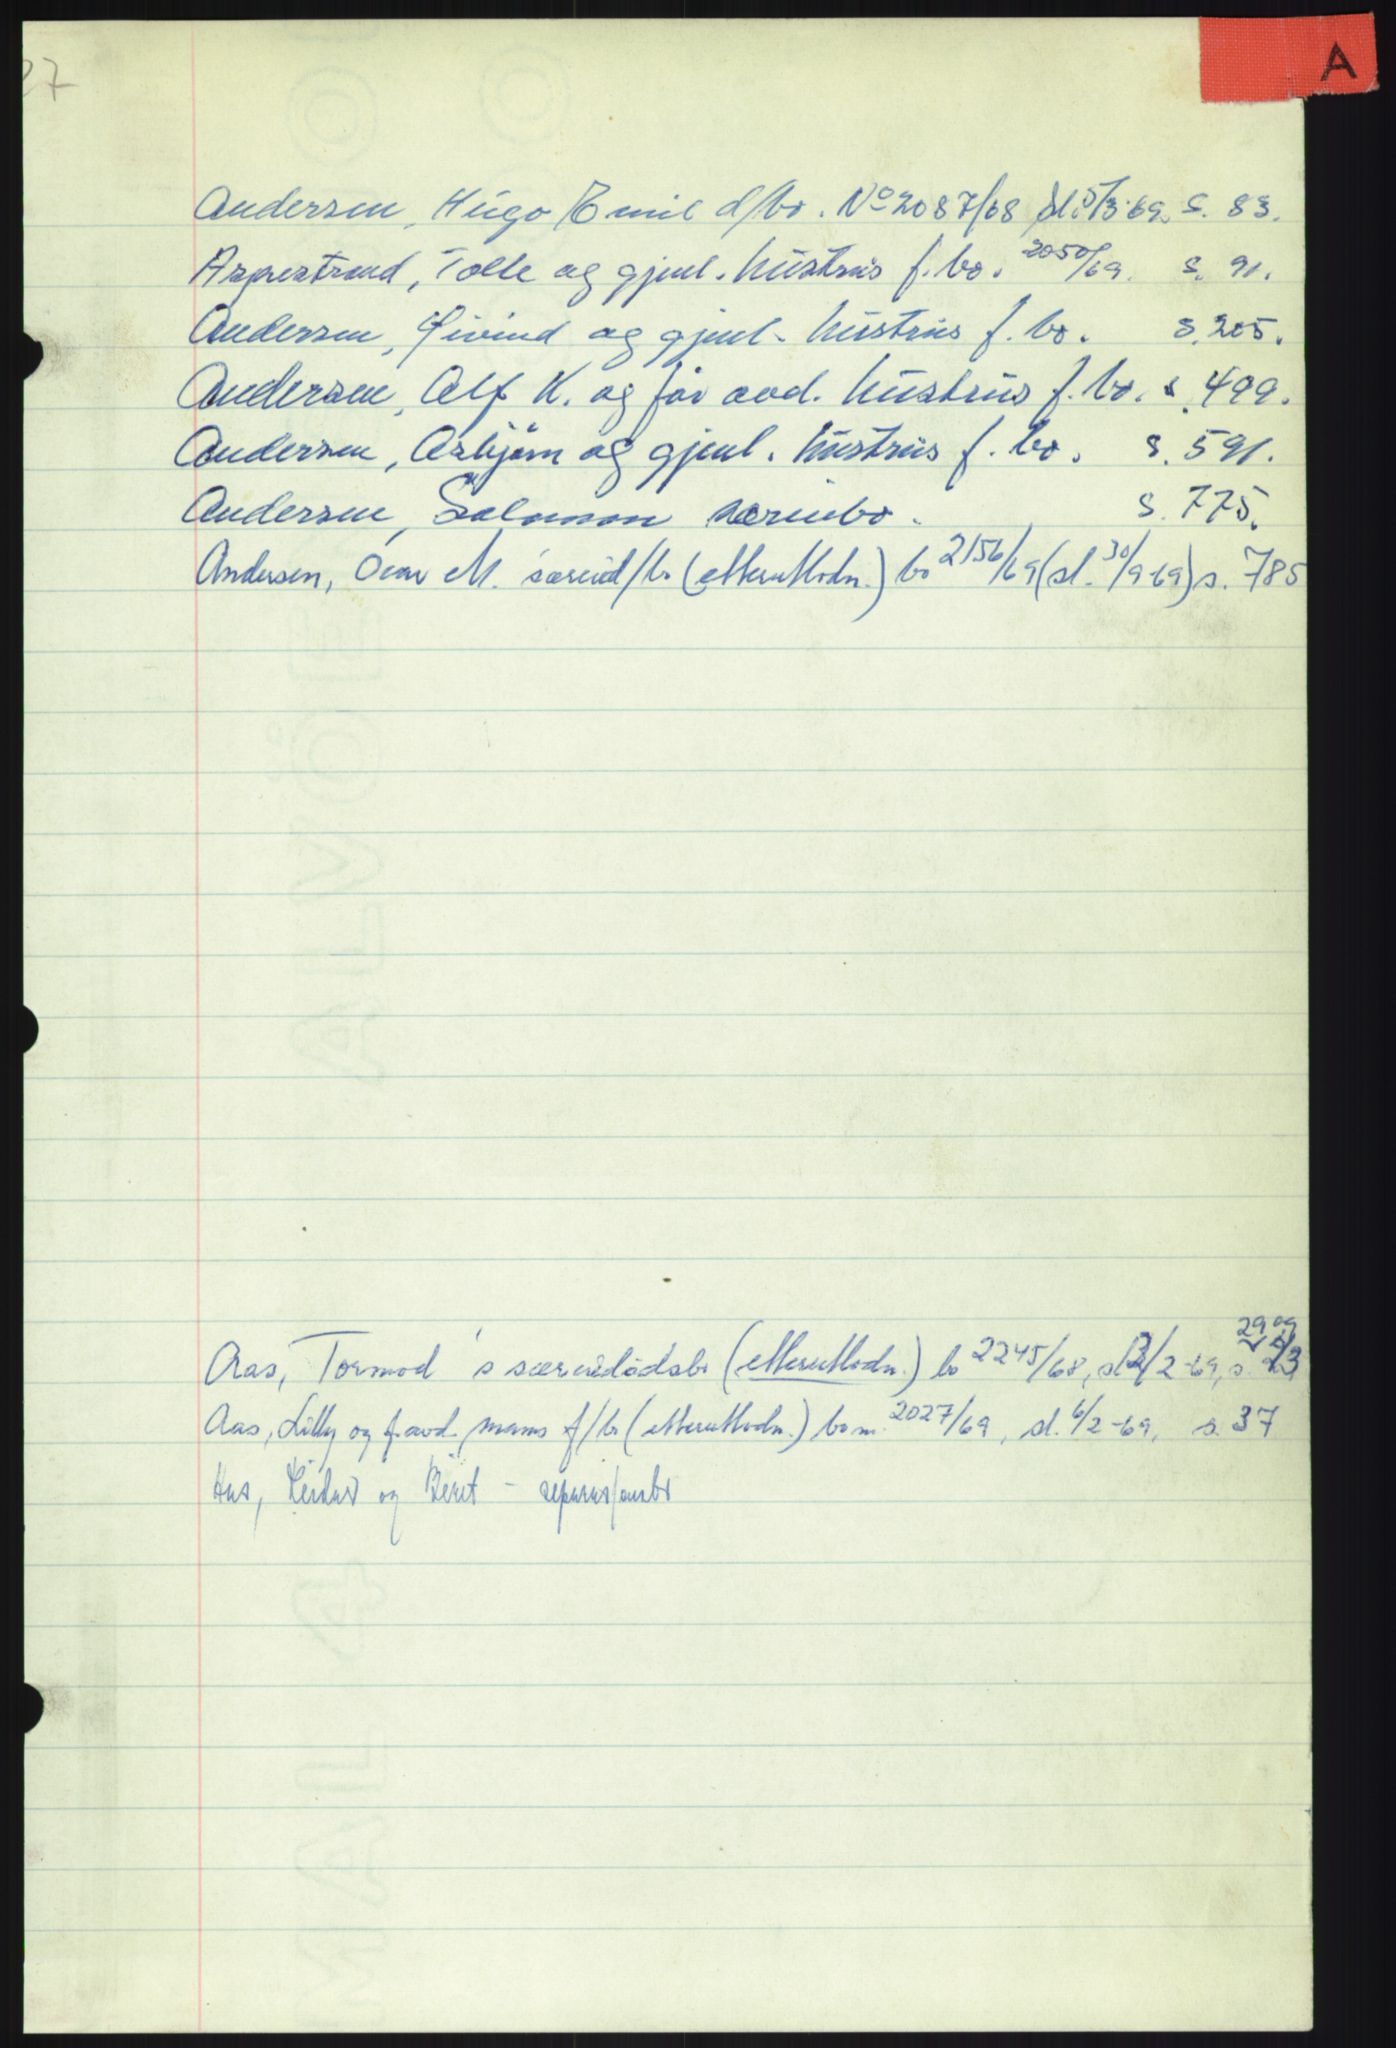 27
A
Andersen, Hugo Emil d/bo. No 2087/68 sl. 5/3-69. s. 83.
Tolle og gjenl. hustrus f. bo. 2050/69. s. 91.
Andersen, Øivind og gjenl. hustrus f. bo. s. 205.
Andersen, Alf K. og før avd. hustrus f. bo. s. 499.
Andersen, Asbjørn og gjenl. hustrus f. bo. s. 591.
Andersen, Salomon særeiebo. s. 775.
Andersen, M. særeied/bo (etterutlodn.) bo 2156/69 (sl. 30/9-69) s. 785
Aas, Tormod's særeiedødsbo (etterutlodn.) bo 2245/68, sl. /2-69, s.
Aas, Lilly og f. avd. manns f/bo (etterutlodn.) bo nr. 2027/69, sl. 6/2-69, s. 37
og Beret -